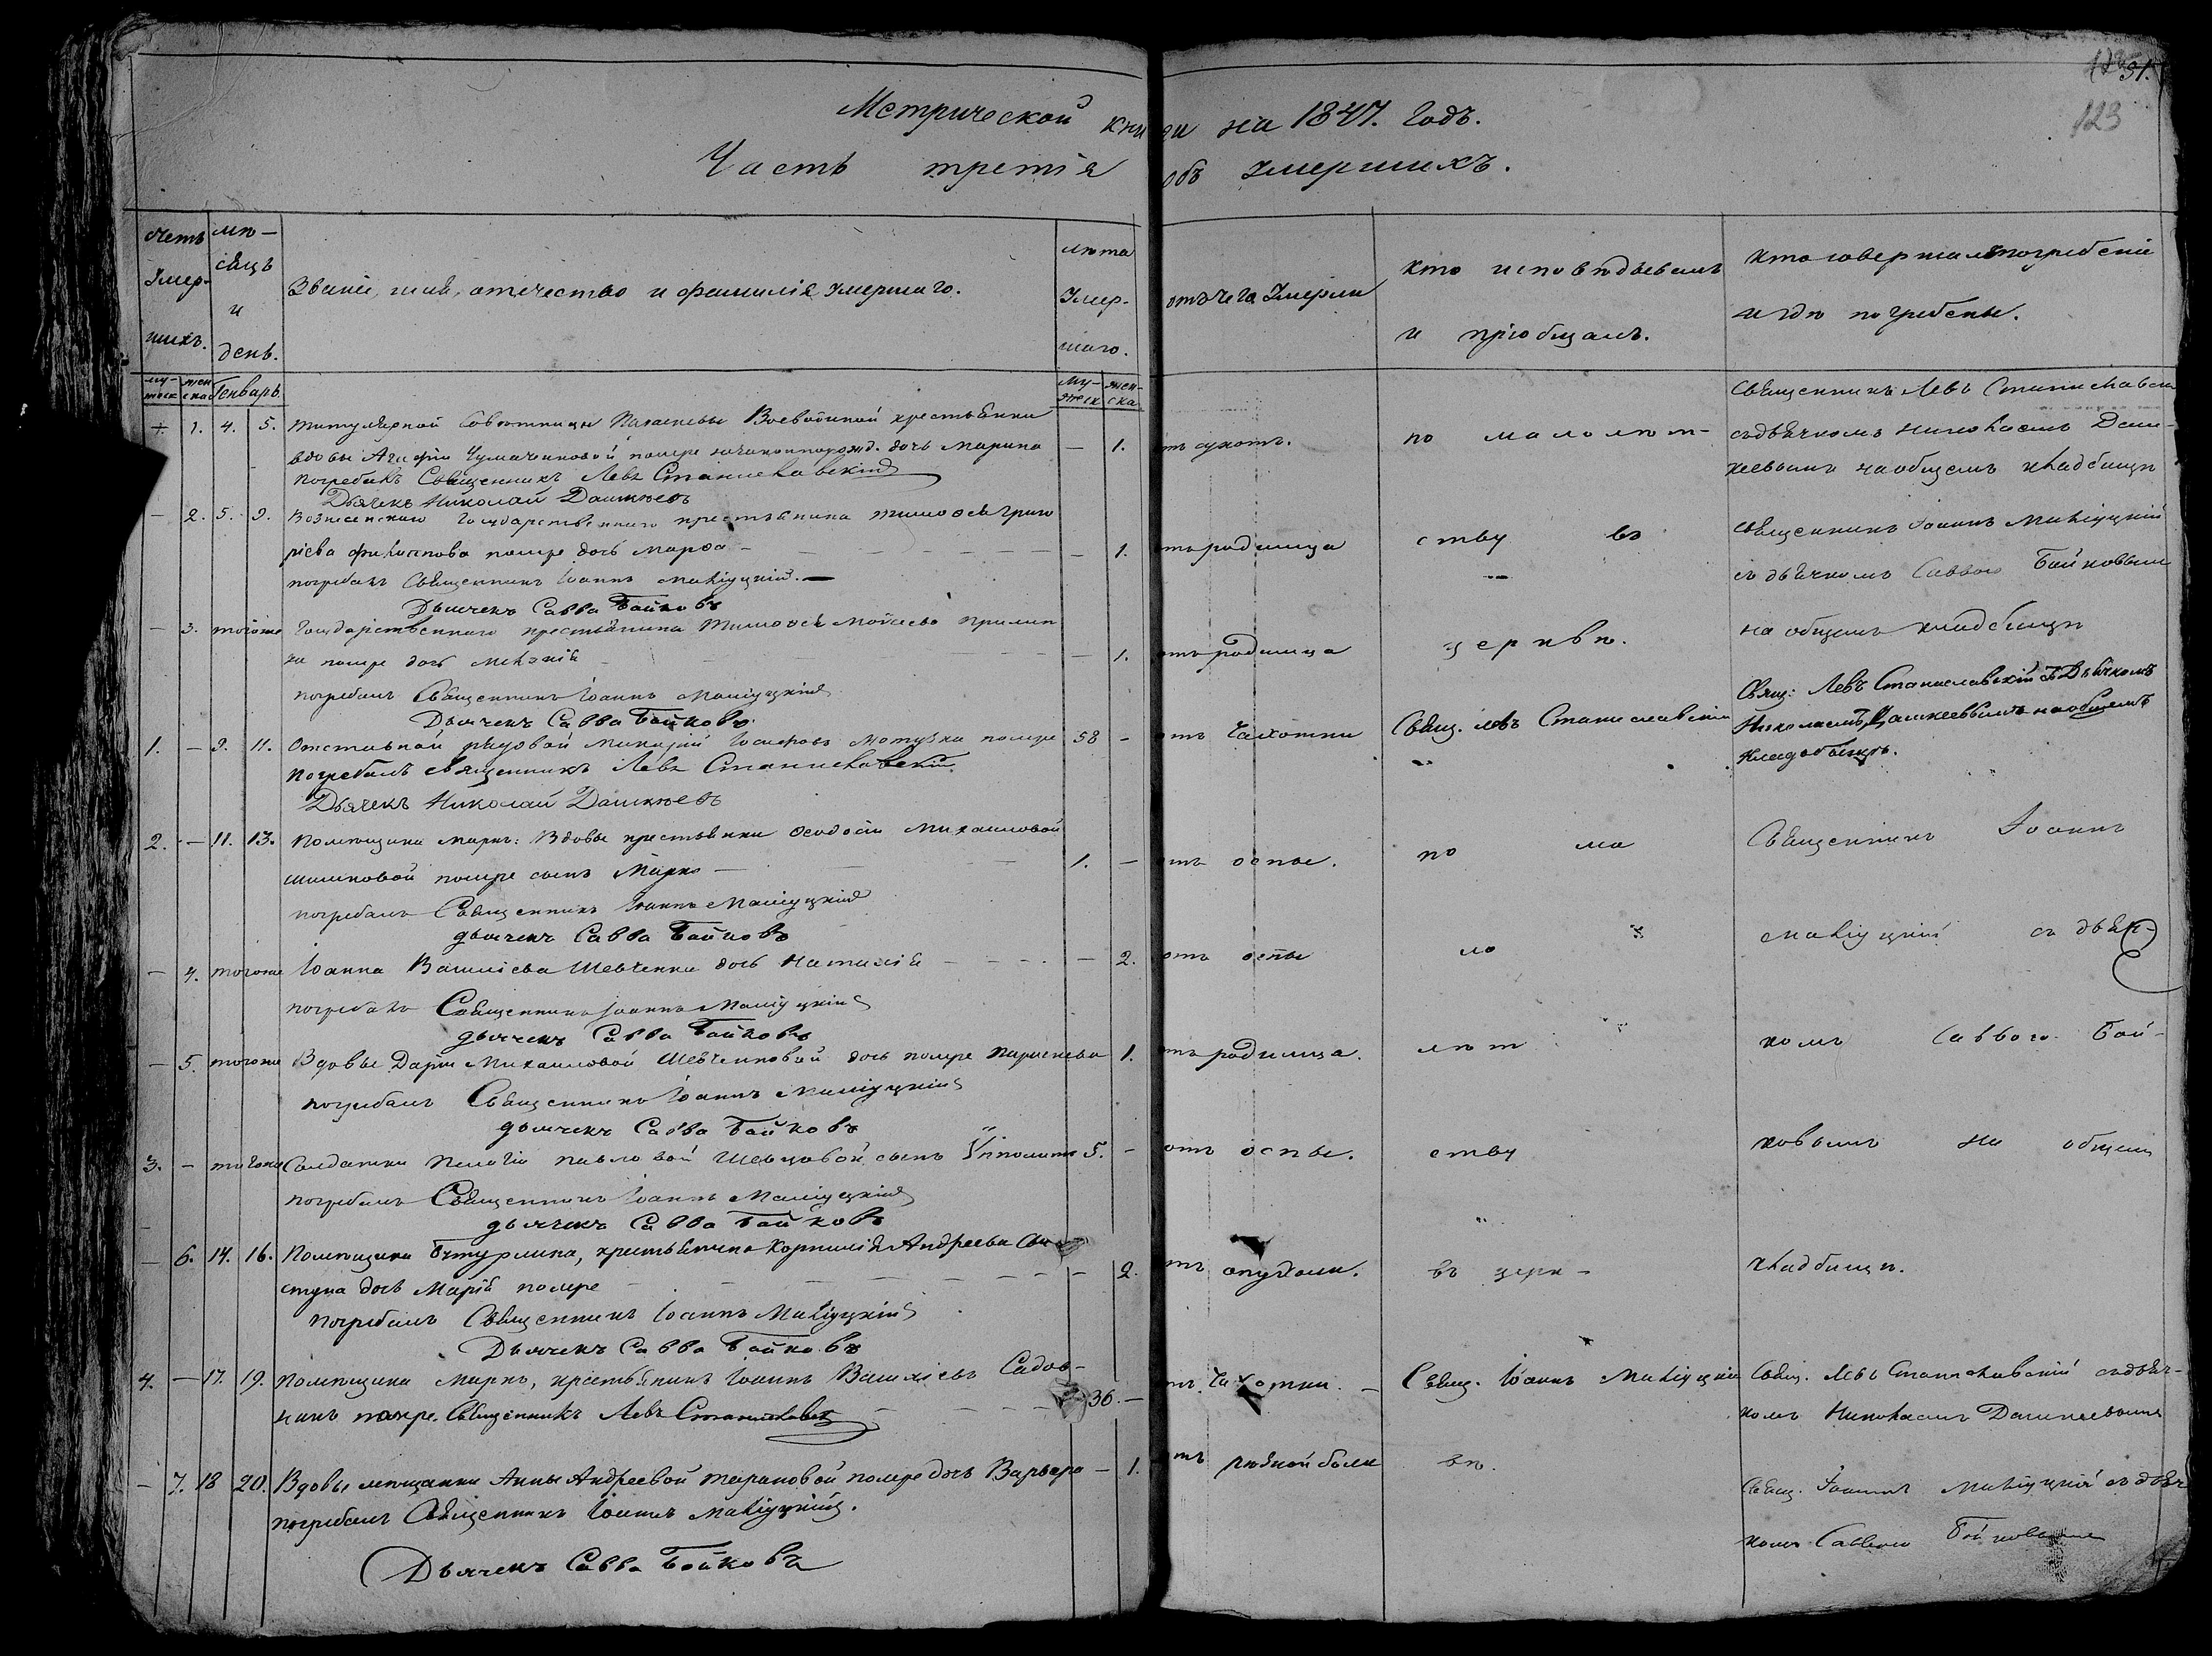 31.
123
Метрической книги на 1847. годъ.
Часть третія объ Умершихъ.
счетъ Умер-шихъ.
мѣ-сяцъ и день.
Званіе, имя, отечество и фамилія Умершаго.
лѣта Умер-шаго.
отъ чего Умерли
кто исповѣдывалъ
и пріобщалъ.
кто совершалъ погребеніе
и гдѣ погребены.
Генварь.
му- жен-ска
1. 4. 5. Титулярной Совѣтницы Воеводиной крестьянки
вдовы Чумаченковой помре дочь Марина — 1. сухотъ. по малолѣт-
погребалъ Священникъ Левъ Станиславскій
Дьячекъ Николай Дашкѣевъ
Священникъ Левъ Станиславскій
съ дьячкомъ Николаемъ Даш-
кеевымъ на общемъ кладбищѣ
— 2. 5. 9. Вознесенскаго Государственнаго крестьянина Тимоѳея Григо
рієва Филипова помре дочь Марѳа — 1. отъ родимца ству въ
погребалъ Священникъ Іоаннъ Маліуцкій.
Дьячекъ Савва Байковъ
Священникъ Іоаннъ Маліуцкій
съ дьячкомъ Саввою Байковым
— 3. тогоже Государственнаго крестьянина Тимоѳея Мойсеева
помре дочь — 1. отъ родимца церквѣ.
погребалъ Священникъ Іоаннъ Маліуцкій
Дьячекъ Савва Байковъ.
на общемъ кладбищѣ
1. — 9. 11. Отставной рядовой Іосифовъ помре 58 - отъ Чахотки Свящ. Левъ Станиславскій
погребалъ священникъ Левъ Станиславскій
Дьячекъ Николай Дашкѣевъ
Свящ: Левъ Станиславскій съ Дьячкомъ
Николаемъ Дашкеевымъ на общемъ
кладобищѣ.
2. — 11. 13. Помѣщика Маркъ: Вдовы крестьянки Ѳеодосіи Михаиловой
помре сынъ Марко — 1. — отъ оспы. по ма
погребалъ Священникъ Іоаннъ Маліуцкій
дьячекъ Савва Байковъ
Священникъ Іоаннъ
— 4. тогоже Іоанна Василіева Шевченка дочь Наталія — 2. отъ оспы ло
погребалъ Священникъ Іоаннъ Маліуцкій
дьячекъ Савва Байковъ
Маліуцкій съ дьяч-
— 5. тогоже Вдовы Дарьи Михаиловой Шевченковой дочь помре 1. отъ родимца. лѣт
погребалъ Священникъ Іоаннъ Маліуцкій
дьячекъ Савва Байковъ
комъ Саввою Бай-
3. — тогоже Солдатки Пелагіи Павловой Шевцовой сынъ Ипполитъ 5. - отъ оспы. ству
погребалъ Священникъ Іоаннъ Маліуцкій
дьячекъ Савва Байковъ
ковымъ на общемъ
— 6. 14. 16. Помѣщика Бутурлина, крестьянина Корнилія Андреева
дочь Марія помре — 2. отъ опухоли. въ церк-
погребалъ Священникъ Іоаннъ Маліуцкій
Дьячекъ Савва Байковъ
кладбищѣ.
4. — 17. 19. Помѣщика Маркъ, крестьянинъ Іоаннъ Василіевъ Садов-
никъ помре. Священникъ Левъ Станиславскій 36. — отъ Чахотки. — Свящ. Іоаннъ Маліуцкій
Свящ. Левъ Станиславскій съ дьяч-
комъ Николаемъ Дашкеевымъ
— 7. 18 20. Вдовы мѣщанки Анны Андреевой Тарановой помре дочь Варвара — 1. отъ боли вѣ.
погребалъ Священникъ Іоаннъ Маліуцкій.
Дьячекъ Савва Байковъ
Свящ. Іоаннъ Маліуцкій съ дьяч
комъ Саввою Байковымъ